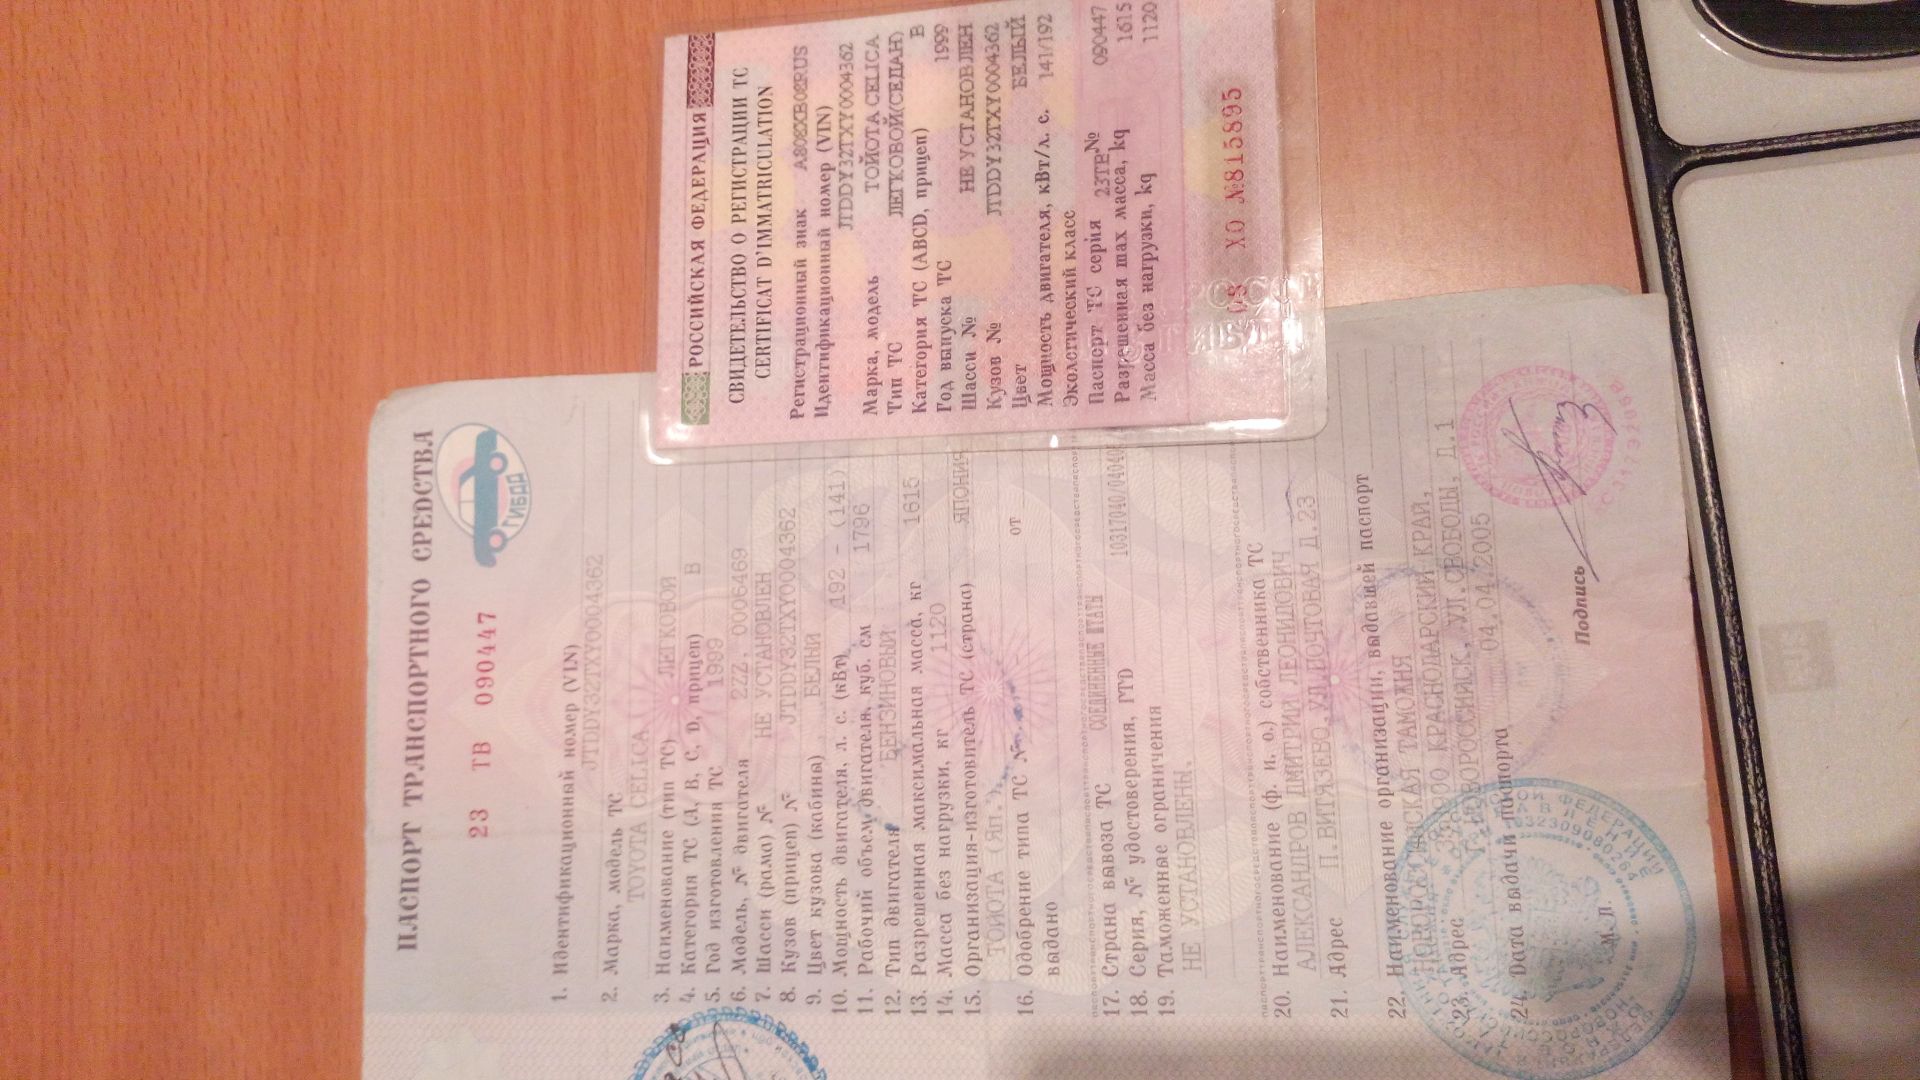 ПАСПОРТ ТРАНСПОРТНОГО СРЕДСТВА
23 ТВ 090447
ГИБДД
1. Идентификационный номер (VIN)
JTDDY32TXY0004362
2. Марка, модель ТС
TOYOTA CELICA
3. Наименование (тип ТС) ЛЕГКОВОЙ
4. Категория ТС (А, В, С, D, прицеп) В
5. Год изготовления ТС 1999
6. Модель, № двигателя 2ZZ, 0006469
7. Шасси (рама) № НЕ УСТАНОВЛЕН
8. Кузов (прицеп) № JTDDY32TXY0004362
9. Цвет кузова (кабины) БЕЛЫЙ
10. Мощность двигателя, л. с. (кВт) 192 - (141)
11. Рабочий объем двигателя, куб. см 1796
12. Тип двигателя БЕНЗИНОВЫЙ
13. Разрешенная максимальная масса, кг 1615
14. Масса без нагрузки, кг 1120
15. Организация-изготовитель ТС (страна) ЯПОНИЯ
16. Одобрение типа ТС № от
выдано
17. Страна вывоза ТС СОЕДИНЕННЫЕ ШТАТЫ
18. Серия, № удостоверения, ГТD 10317040/04040
19. Таможенные ограничения
НЕ УСТАНОВЛЕНЫ.
20. Наименование (ф. и. о.) собственника ТС
АЛЕКСАНДРОВ ДМИТРИЙ ЛЕОНИДОВИЧ
21. Адрес П.ВИТЯЗЕВО,УЛ.ПОЧТОВАЯ Д.23
22. Наименование организации, выдавшей паспорт
НОВОРОССИЙСКАЯ ТАМОЖНЯ
КРАСНОДАРСКИЙ КРАЙ,
23. Адрес Г.НОВОРОССИЙСК, УЛ.СВОБОДЫ, Д.1
24. Дата выдачи паспорта 04.04.2005
М.П.
Подпись
РОССИЙСКАЯ ФЕДЕРАЦИЯ
СВИДЕТЕЛЬСТВО О РЕГИСТРАЦИИ ТС
CERTIFICAT D'IMMATRICULATION
Регистрационный знак А808ХВ08RUS
Идентификационный номер (VIN)
JTDDY32TXY0004362
Марка, модель ТОЙОТА CELICA
Тип ТС ЛЕГКОВОЙ(СЕДАН)
Категория ТС (ABCD, прицеп) В
Год выпуска ТС 1999
Шасси № НЕ УСТАНОВЛЕН
Кузов № JTDDY32TXY0004362
Цвет БЕЛЫЙ
Мощность двигателя, кВт/л. с. 141/192
Экологический класс
Паспорт ТС серия 23ТВ № 090447
Разрешенная max масса, kg 1615
Масса без нагрузки, kg 1120
08 ХО №815895